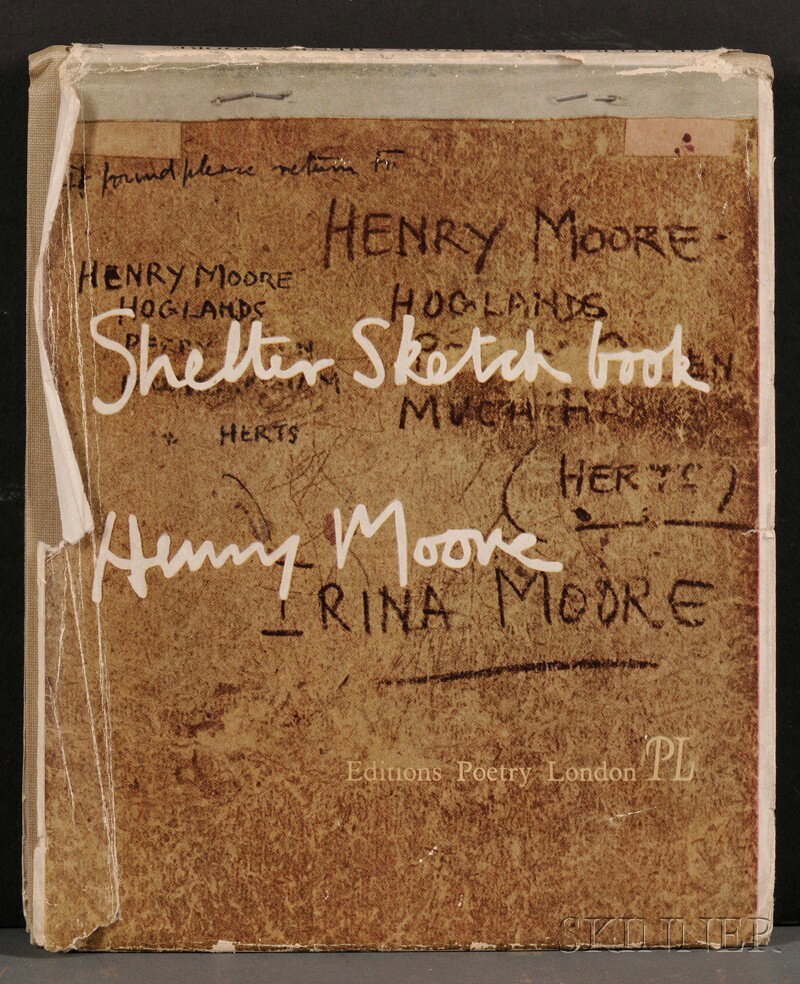 if found please return to
HENRY MOORE
HENRY MOORE
HOGLANDS
HOGLANDS
Shelter Sketch book
MUCH
HERTS
(HERTS)
Henry Moore
IRINA MOORE
Editions Poetry London PL
SKINNER